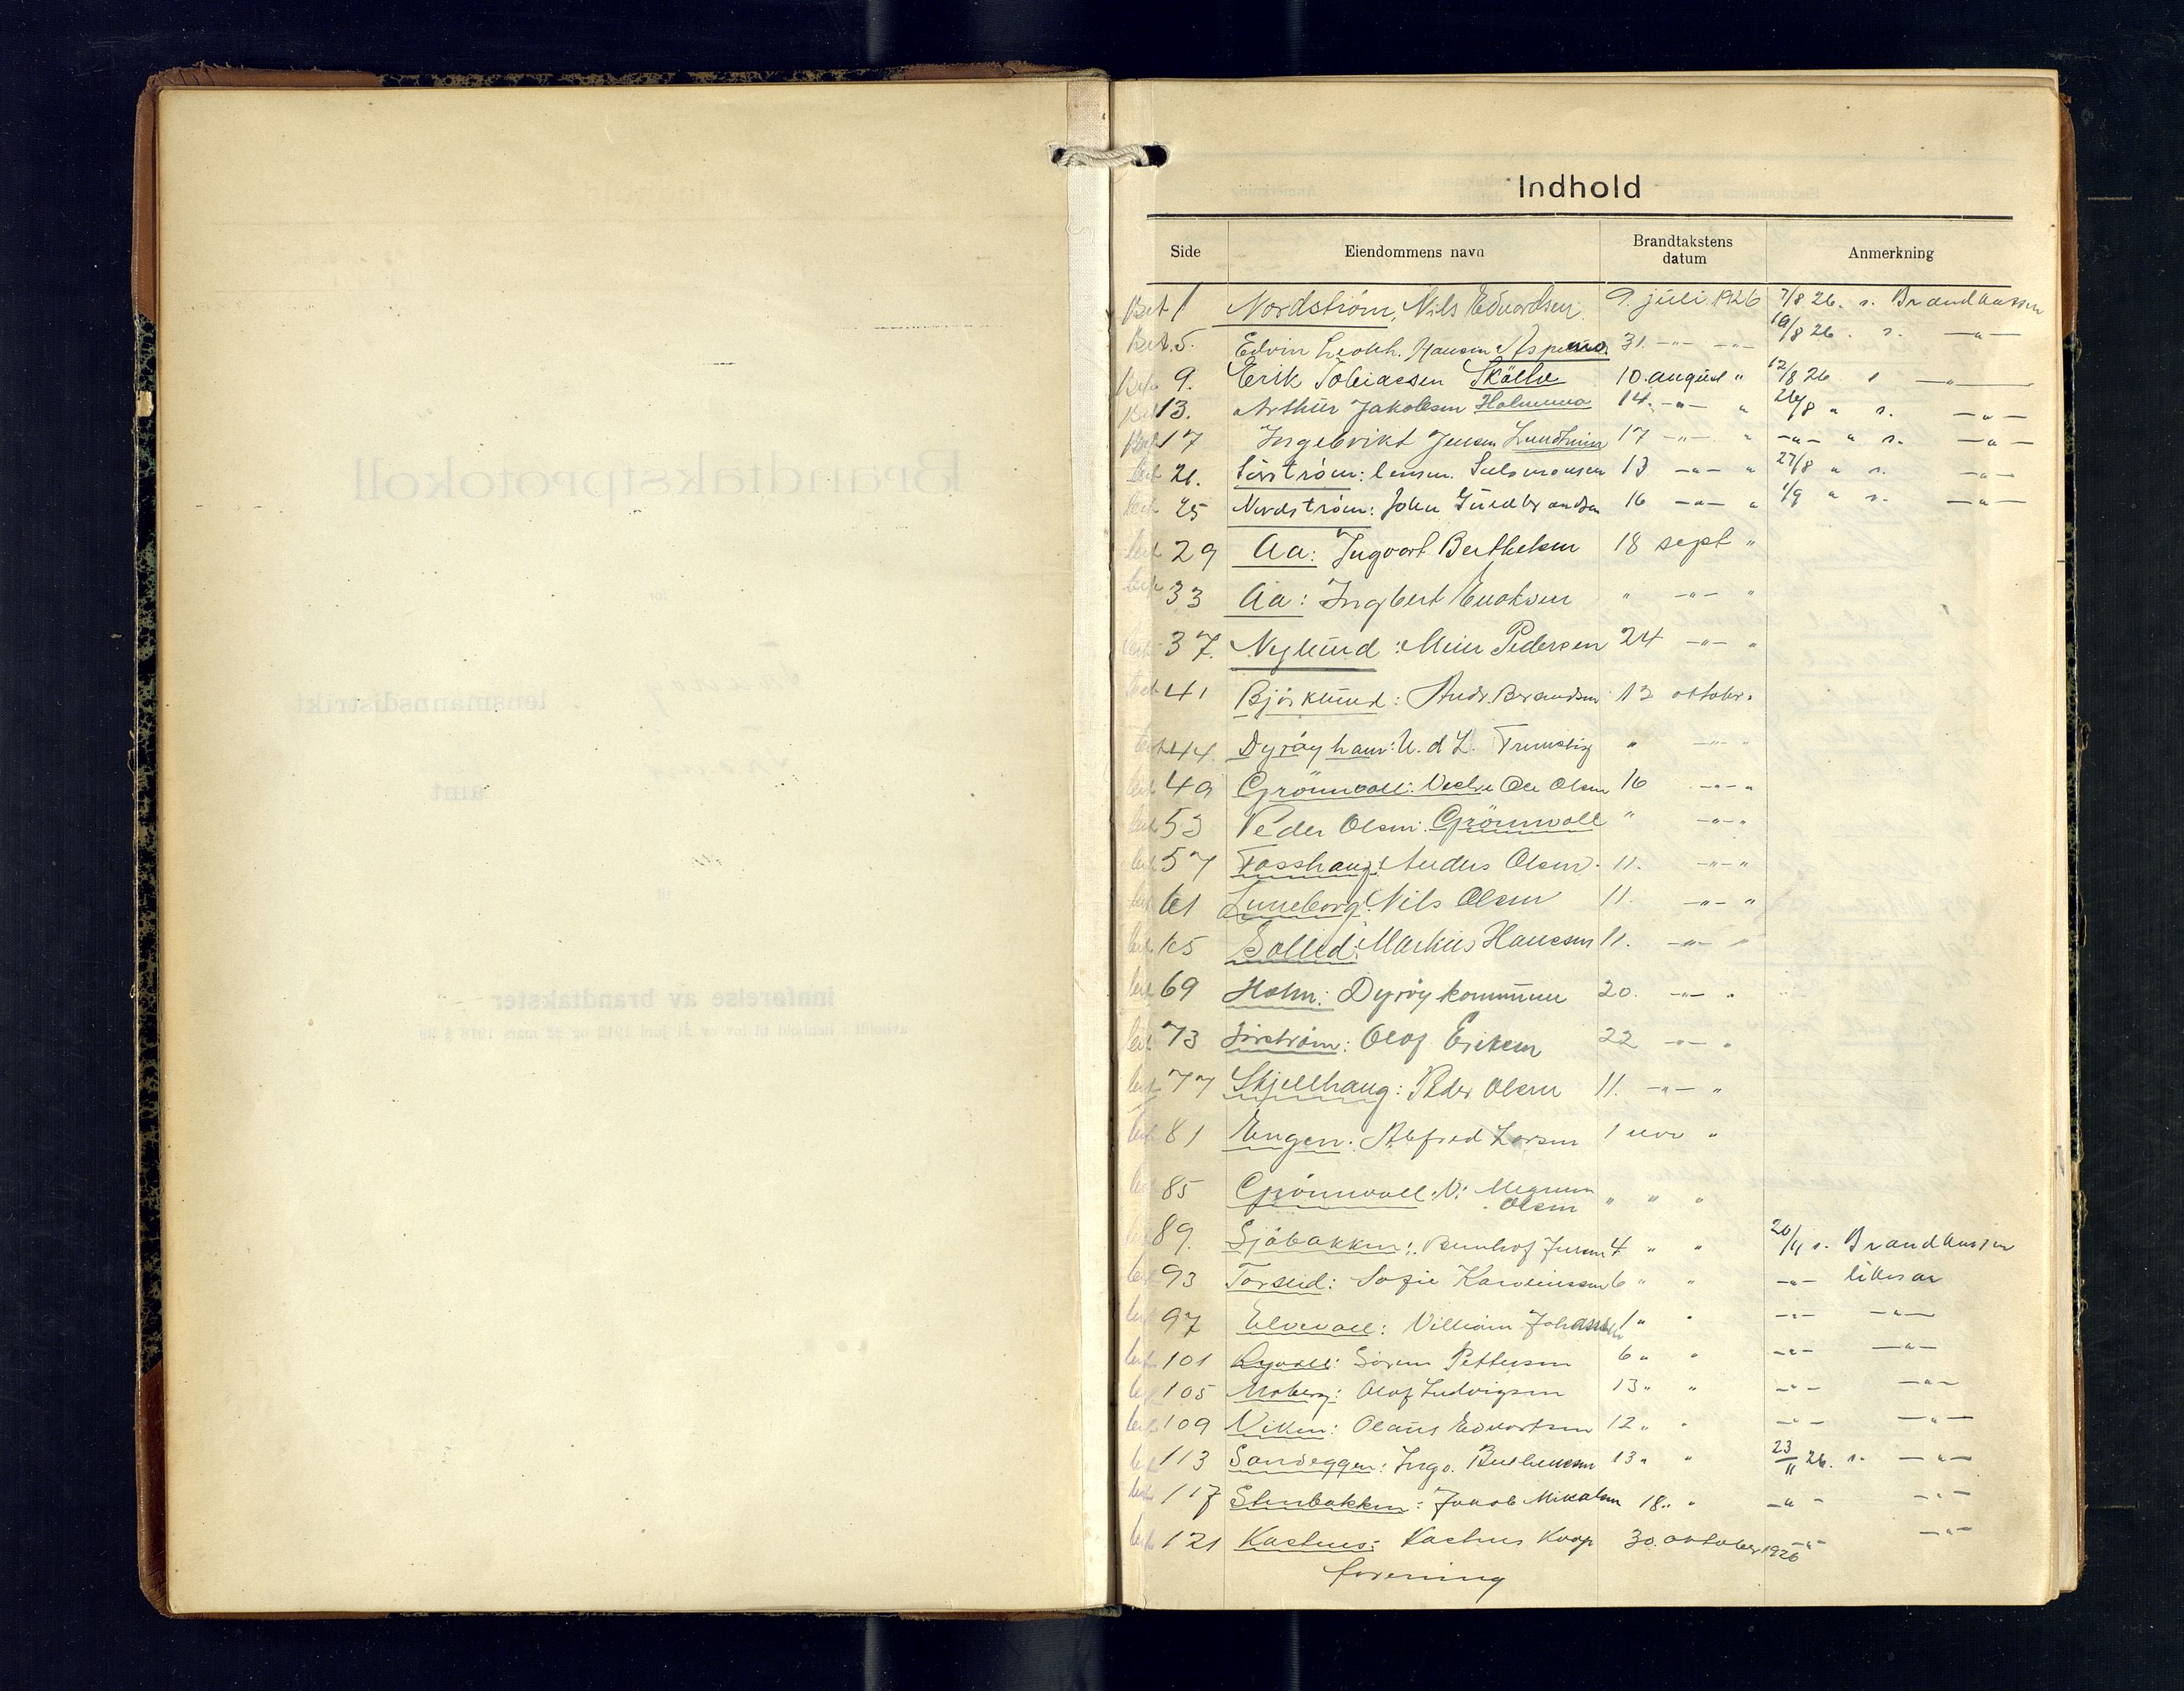 Indhold
Side Eiendommens navn Brandtakstens datum Anmerkning
Bet 1 Nordström, Nils Edvardsen 9. juli 1926 7/8 26. s. Brandkassen
Bet. 5. Edvin Hansen Aspemo 31. -"- -"- 10/8 26. s. -"-
Bet. 9. Erik Tobiassen 10. august " 12/8 26 s -"-
Bet 13. Arthur Jakobsen 14. -"- " 26/8 " s. -"-
Bet 17 Ingebrikt Jensen 17 -"- " -"- " s. -"-
bet 21. Sörström: 13 -"- " 27/8 " s. -"-
bet 25 Nordström: John Guldbrandsen 16 -"- " 1/9 " s. -"-
bet 29 Aa: Ingvart Berthelsen 18 sept "
bet 33 Aa: Ingbert Enoksen " -"- "
bet 37. Nylund: Meier Pedersen 24 -"- "
bet 41 Björklund: Andr. Berandsen 13 oktober "
bet 44. Dyröyhamn: U. d L. " -"- "
bet 49 Grönnvoll: Ole Olsen 16 -"- "
bet 53 Peder Olsen: Grönnvoll " -"- "
bet 57 Fosshaug: Anders Olsen. 11. -"- "
bet 61 Luneborg: Nils Olsen 11. -"- "
bet 65 Sollid: Markus Hansen 11. -"- "
bet 69 Holm: Dyröy kommune 20. -"- "
bet 73 Sörström: Olof Eriksen 22 -"- "
bet 77 Skjellhaug: Peder Olsen 11. -"- "
bet 81 Engen: Alfred Larsen 1 nov "
bet 85 Grönnvoll: N: Magnus Olsen " " "
bet 89. Sjöbakken: Bernhof Jensen 4 " " 20/11 s. Brandkassen
bet 93 Torseid: Sofie Karoliussen 6 " " -"-
bet 97 Elvevoll: Villiam Johansen 1 " " -"- -"-
bet 101 Sören Pettersen 6 " " -"- -"-
bet 105 Moberg: Olof Ludvigsen 13 " " -"- -"-
bet 109 Viken: Olaus Edvartsen 12 " " -"- -"-
bet 113 Sandeggen: Ingv. Berthensen 13 " " 23/11 26. s. -"-
bet 117 Stenbakken: Jakob Mikalsen 18. " -"- -"-
bet 121 Kastnes: Kastnes Koop 30. oktober 1926 -"- -"-
forening
Brandtakstprotokoll
for
lensmannsdistrikt
amt
til
innførelse av brandtakster